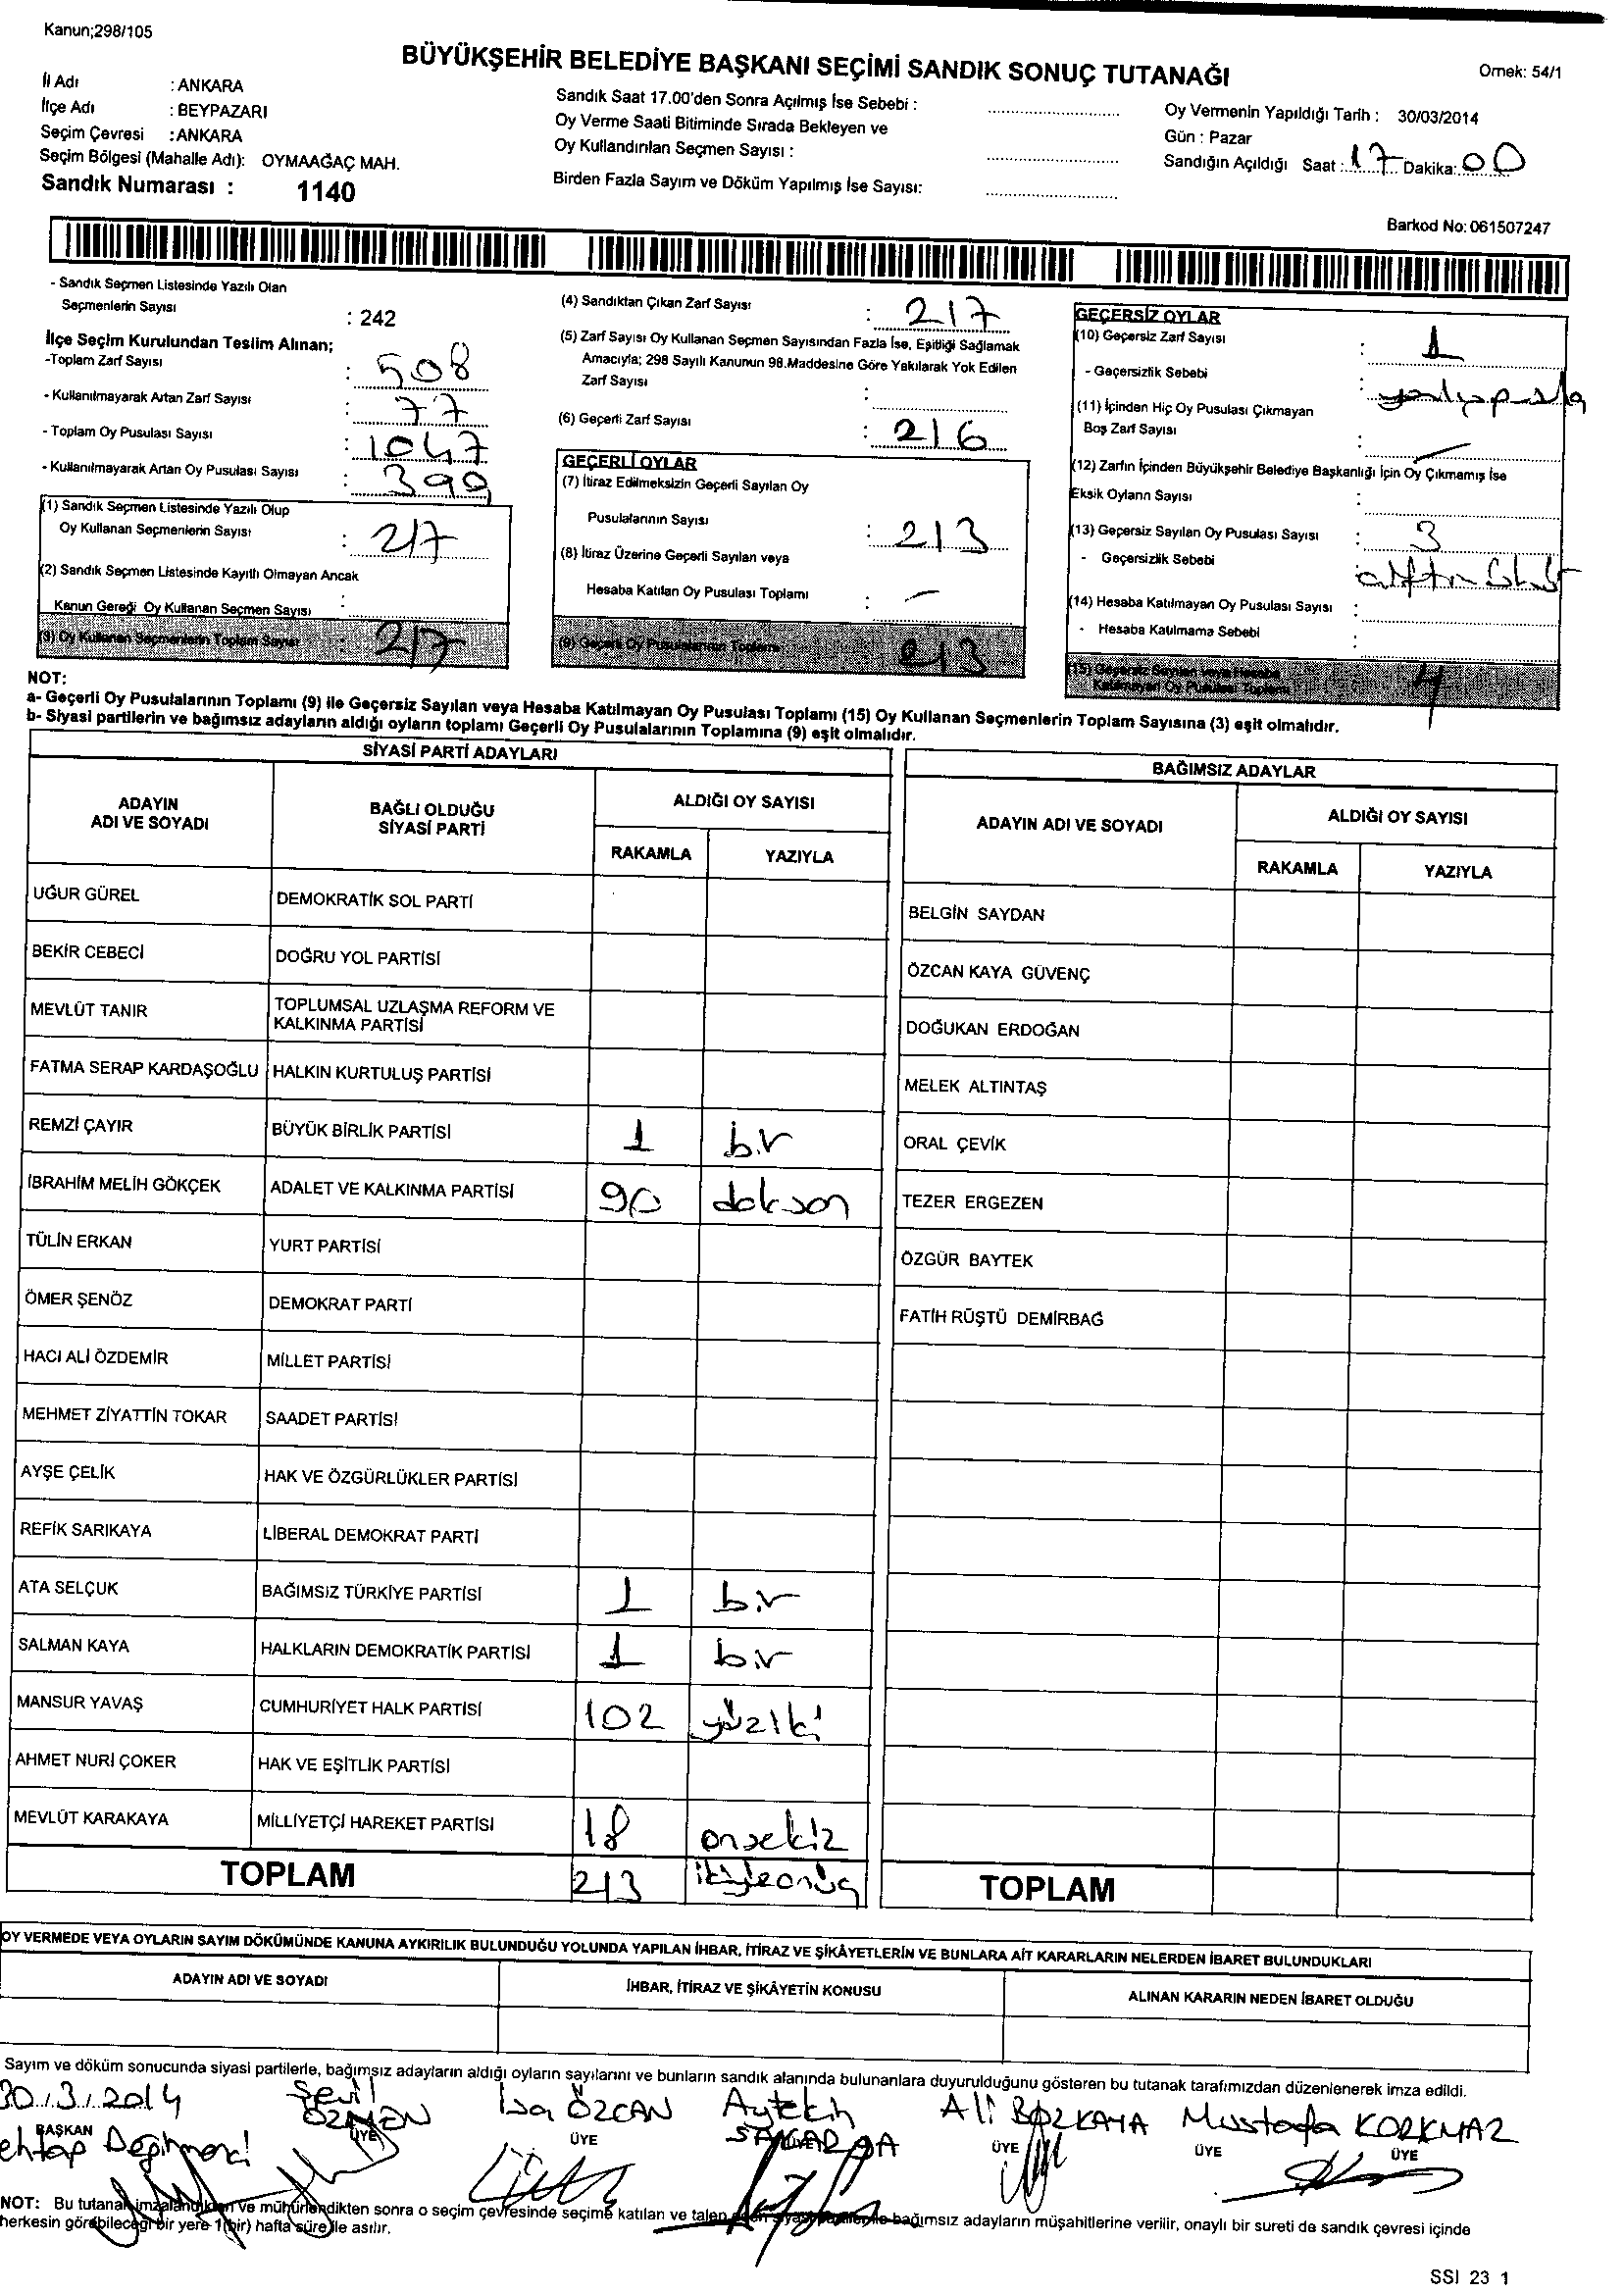 Kanun;298/105
BÜYÜKŞEHİR BELEDİYE BAŞKANI SEÇİMİ SANDIK SONUÇ TUTANAĞI
Ornek: 54/1
İl Adı : ANKARA
İlçe Adı : BEYPAZARI
Seçim Çevresi : ANKARA
Seçim Bölgesi (Mahalle Adı): OYMAAĞAÇ MAH.
Sandık Numarası : 1140
Sandık Saat 17.00'den Sonra Açılmış İse Sebebi :
Oy Verme Saati Bitiminde Sırada Bekleyen ve
Oy Kullandırılan Seçmen Sayısı :
Birden Fazla Sayım ve Döküm Yapılmış İse Sayısı:
Oy Vermenin Yapıldığı Tarih : 30/03/2014
Gün : Pazar
Sandığın Açıldığı Saat : 17 Dakika: 00
Barkod No: 061507247
- Sandık Seçmen Listesinde Yazılı Olan
Seçmenlerin Sayısı : 242
İlçe Seçim Kurulundan Teslim Alınan;
-Toplam Zarf Sayısı : 508
- Kullanılmayarak Artan Zarf Sayısı : 77
- Toplam Oy Pusulası Sayısı : 1047
- Kullanılmayarak Artan Oy Pusulası Sayısı : 399
(1) Sandık Seçmen Listesinde Yazılı Olup
Oy Kullanan Seçmenlerin Sayısı : 217
(2) Sandık Seçmen Listesinde Kayıtlı Olmayan Ancak
Kanun Gereği Oy Kullanan Seçmen Sayısı :
(3) Oy Kullanan Seçmenlerin Toplam Sayısı : 217
(4) Sandıktan Çıkan Zarf Sayısı : 217
(5) Zarf Sayısı Oy Kullanan Seçmen Sayısından Fazla İse, Eşitliği Sağlamak
Amacıyla; 298 Sayılı Kanunun 98.Maddesine Göre Yakılarak Yok Edilen
Zarf Sayısı :
(6) Geçerli Zarf Sayısı : 216
GEÇERLİ OYLAR
(7) İtiraz Edilmeksizin Geçerli Sayılan Oy
Pusulalarının Sayısı : 213
(8) İtiraz Üzerine Geçerli Sayılan veya
Hesaba Katılan Oy Pusulası Toplamı : —
(9) Geçerli Oy Pusulalarının Toplamı : 213
GEÇERSİZ OYLAR
(10) Geçersiz Zarf Sayısı : 1
- Geçersizlik Sebebi :
(11) İçinden Hiç Oy Pusulası Çıkmayan
Boş Zarf Sayısı : —
(12) Zarfın İçinden Büyükşehir Belediye Başkanlığı İçin Oy Çıkmamış İse
Eksik Oyların Sayısı :
(13) Geçersiz Sayılan Oy Pusulası Sayısı : 3
- Geçersizlik Sebebi :
(14) Hesaba Katılmayan Oy Pusulası Sayısı :
- Hesaba Katılmama Sebebi :
(15) Geçersiz Sayılan veya Hesaba
Katılmayan Oy Pusulası Toplamı 4
NOT:
a- Geçerli Oy Pusulalarının Toplamı (9) ile Geçersiz Sayılan veya Hesaba Katılmayan Oy Pusulası Toplamı (15) Oy Kullanan Seçmenlerin Toplam Sayısına (3) eşit olmalıdır.
b- Siyasi partilerin ve bağımsız adayların aldığı oyların toplamı Geçerli Oy Pusulalarının Toplamına (9) eşit olmalıdır.
SİYASİ PARTİ ADAYLARI
ADAYIN ADI VE SOYADI BAĞLI OLDUĞU SİYASİ PARTİ ALDIĞI OY SAYISI
RAKAMLA YAZIYLA
UĞUR GÜREL DEMOKRATİK SOL PARTİ
BEKİR CEBECİ DOĞRU YOL PARTİSİ
MEVLÜT TANIR TOPLUMSAL UZLAŞMA REFORM VE
KALKINMA PARTİSİ
FATMA SERAP KARDAŞOĞLU HALKIN KURTULUŞ PARTİSİ
REMZİ ÇAYIR BÜYÜK BİRLİK PARTİSİ 1 bir
İBRAHİM MELİH GÖKÇEK ADALET VE KALKINMA PARTİSİ 90 doksan
TÜLİN ERKAN YURT PARTİSİ
ÖMER ŞENÖZ DEMOKRAT PARTİ
HACI ALİ ÖZDEMİR MİLLET PARTİSİ
MEHMET ZİYATTİN TOKAR SAADET PARTİSİ
AYŞE ÇELİK HAK VE ÖZGÜRLÜKLER PARTİSİ
REFİK SARIKAYA LİBERAL DEMOKRAT PARTİ
ATA SELÇUK BAĞIMSIZ TÜRKİYE PARTİSİ 1 bir
SALMAN KAYA HALKLARIN DEMOKRATİK PARTİSİ 1 bir
MANSUR YAVAŞ CUMHURİYET HALK PARTİSİ 102 yüziki
AHMET NURİ ÇOKER HAK VE EŞİTLİK PARTİSİ
MEVLÜT KARAKAYA MİLLİYETÇİ HAREKET PARTİSİ 18 onsekiz
TOPLAM 213 ikiyüzonüç
BAĞIMSIZ ADAYLAR
ADAYIN ADI VE SOYADI ALDIĞI OY SAYISI
RAKAMLA YAZIYLA
BELGİN SAYDAN
ÖZCAN KAYA GÜVENÇ
DOĞUKAN ERDOĞAN
MELEK ALTINTAŞ
ORAL ÇEVİK
TEZER ERGEZEN
ÖZGÜR BAYTEK
FATİH RÜŞTÜ DEMİRBAĞ
TOPLAM
OY VERMEDE VEYA OYLARIN SAYIM DÖKÜMÜNDE KANUNA AYKIRILIK BULUNDUĞU YOLUNDA YAPILAN İHBAR, İTİRAZ VE ŞİKÂYETLERİN VE BUNLARA AİT KARARLARIN NELERDEN İBARET BULUNDUKLARI
ADAYIN ADI VE SOYADI İHBAR, İTİRAZ VE ŞİKÂYETİN KONUSU ALINAN KARARIN NEDEN İBARET OLDUĞU
Sayım ve döküm sonucunda siyasi partilerle, bağımsız adayların aldığı oyların sayılarını ve bunların sandık alanında bulunanlara duyurulduğunu gösteren bu tutanak tarafımızdan düzenlenerek imza edildi.
30/3/2014 Sevil ÖZMEN İsa ÖZCAN Aytekin Ali BOZKAYA Mustafa KORKMAZ
BAŞKAN ÜYE ÜYE ÜYE ÜYE ÜYE
ehtap Değirmenci
NOT: Bu tutanak imzalandıktan ve mühürlendikten sonra o seçim çevresinde seçime katılan ve talep eden siyasi partiler ile bağımsız adayların müşahitlerine verilir, onaylı bir sureti de sandık çevresi içinde
herkesin görebileceği bir yere 1(bir) hafta süre ile asılır.
SSI 23 1